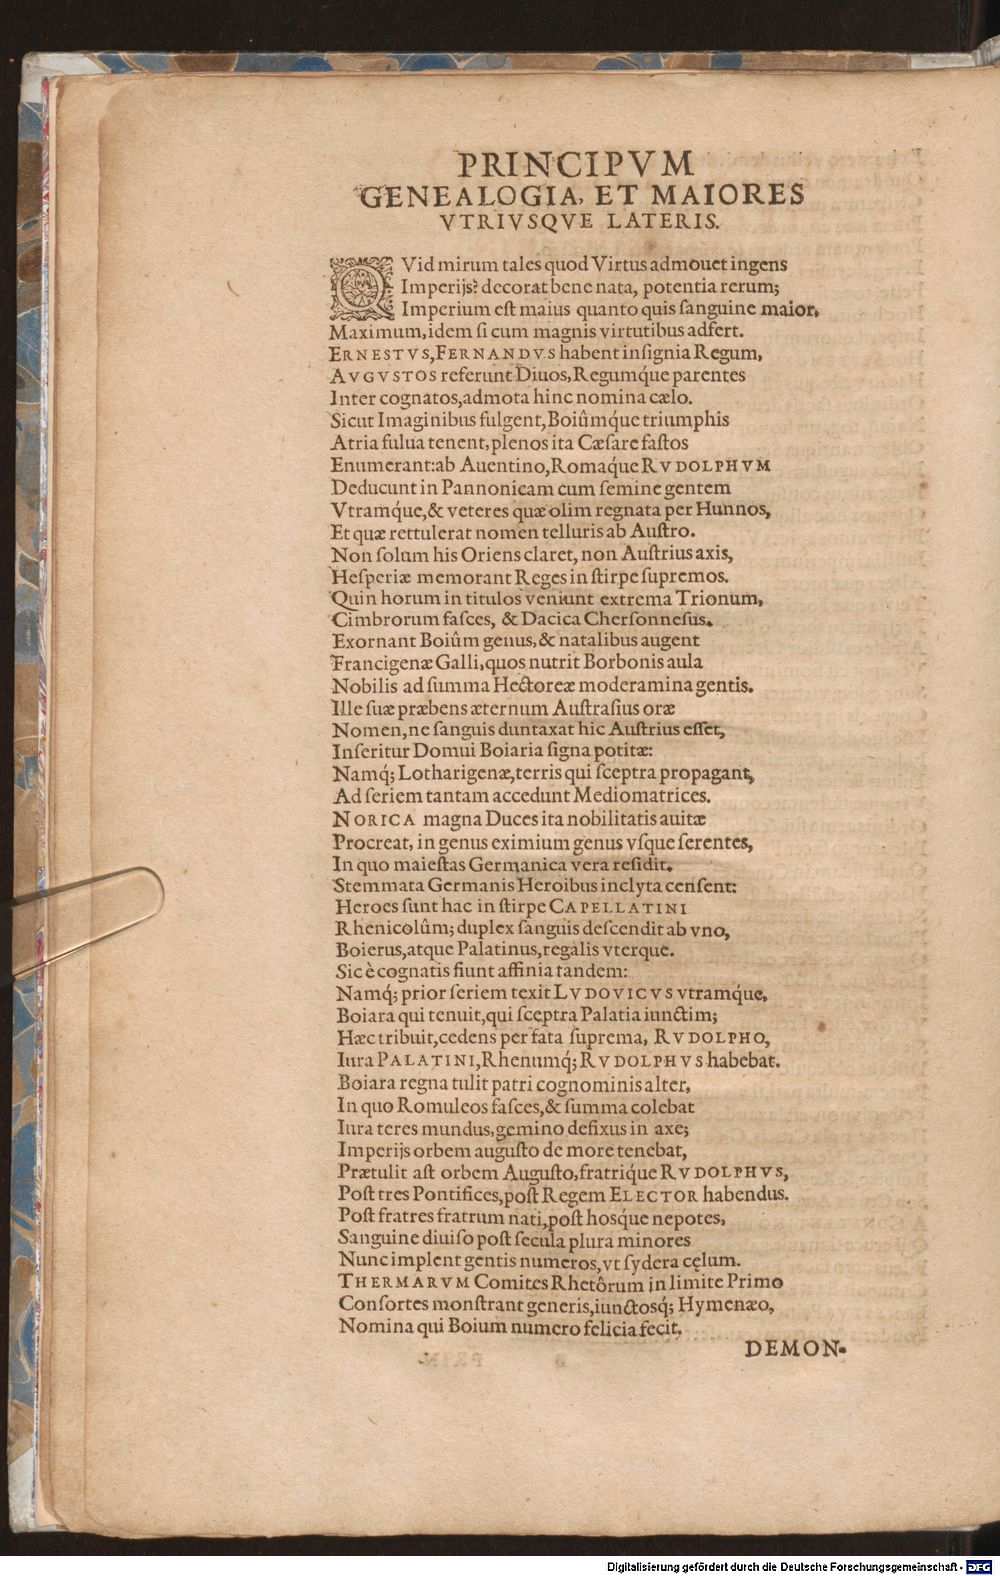 PRINCIPVM
GENEALOGIA, ET MAIORES
VTRIVSQVE LATERIS.
QVid mirum tales quod Virtus admouet ingens
Imperijs? decorat bene nata, potentia rerum;
Imperium eſt maius quanto quis ſanguine maior,
Maximum, idem ſi cum magnis virtutibus adfert.
ERNESTVS, FERNANDVS habent inſignia Regum,
AVGVSTOS referunt Diuos, Regumq́ue parentes
Inter cognatos, admota hinc nomina cælo.
Sicut Imaginibus fulgent, Boiûmq́ue triumphis
Atria fulua tenent, plenos ita Cæſare faſtos
Enumerant: ab Auentino, Romaq́ue RVDOLPHVM
Deducunt in Pannonicam cum ſemine gentem
Vtramq́ue, & veteres quæ olim regnata per Hunnos,
Et quæ rettulerat nomen telluris ab Auſtro.
Non ſolum his Oriens claret, non Auſtrius axis,
Heſperiæ memorant Reges in ſtirpe ſupremos.
Quin horum in titulos veniunt extrema Trionum,
Cimbrorum faſces, & Dacica Cherſonneſus.
Exornant Boiûm genus, & natalibus augent
Francigenæ Galli, quos nutrit Borbonis aula
Nobilis ad ſumma Hectoreæ moderamina gentis.
Ille ſuæ præbens æternum Auſtraſius oræ
Nomen, ne ſanguis duntaxat hic Auſtrius eſſet,
Inſeritur Domui Boiaria ſigna potitæ:
Namq́; Lotharigenæ, terris qui ſceptra propagant,
Ad ſeriem tantam accedunt Mediomatrices.
NORICA magna Duces ita nobilitatis auitæ
Procreat, in genus eximium genus vſque ſerentes,
In quo maieſtas Germanica vera reſidit.
Stemmata Germanis Heroibus inclyta cenſent:
Heroes ſunt hac in ſtirpe CAPELLATINI
Rhenicolûm; duplex ſanguis deſcendit ab vno,
Boierus, atque Palatinus, regalis vterque.
Sic è cognatis fiunt affinia tandem:
Namq́; prior ſeriem texit LVDOVICVS vtramq́ue,
Boiara qui tenuit, qui ſceptra Palatia iunctim;
Hæc tribuit, cedens per fata ſuprema, RVDOLPHO,
Iura PALATINI, Rhenumq́; RVDOLPHVS habebat.
Boiara regna tulit patri cognominis alter,
In quo Romuleos faſces, & ſumma colebat
Iura teres mundus, gemino defixus in axe;
Imperijs orbem auguſto de more tenebat,
Prætulit aſt orbem Auguſto, fratriq́ue RVDOLPHVS,
Poſt tres Pontifices, poſt Regem ELECTOR habendus.
Poſt fratres fratrum nati, poſt hosq́ue nepotes,
Sanguine diuiſo poſt ſecula plura minores
Nunc implent gentis numeros, vt ſydera cęlum.
THERMARVM Comites Rhetôrum in limite Primo
Conſortes monſtrant generis, iunctosq́; Hymenæo,
Nomina qui Boium numero felicia fecit.
DEMON-
Digitalisierung gefördert durch die Deutsche Forschungsgemeinschaft - DFG